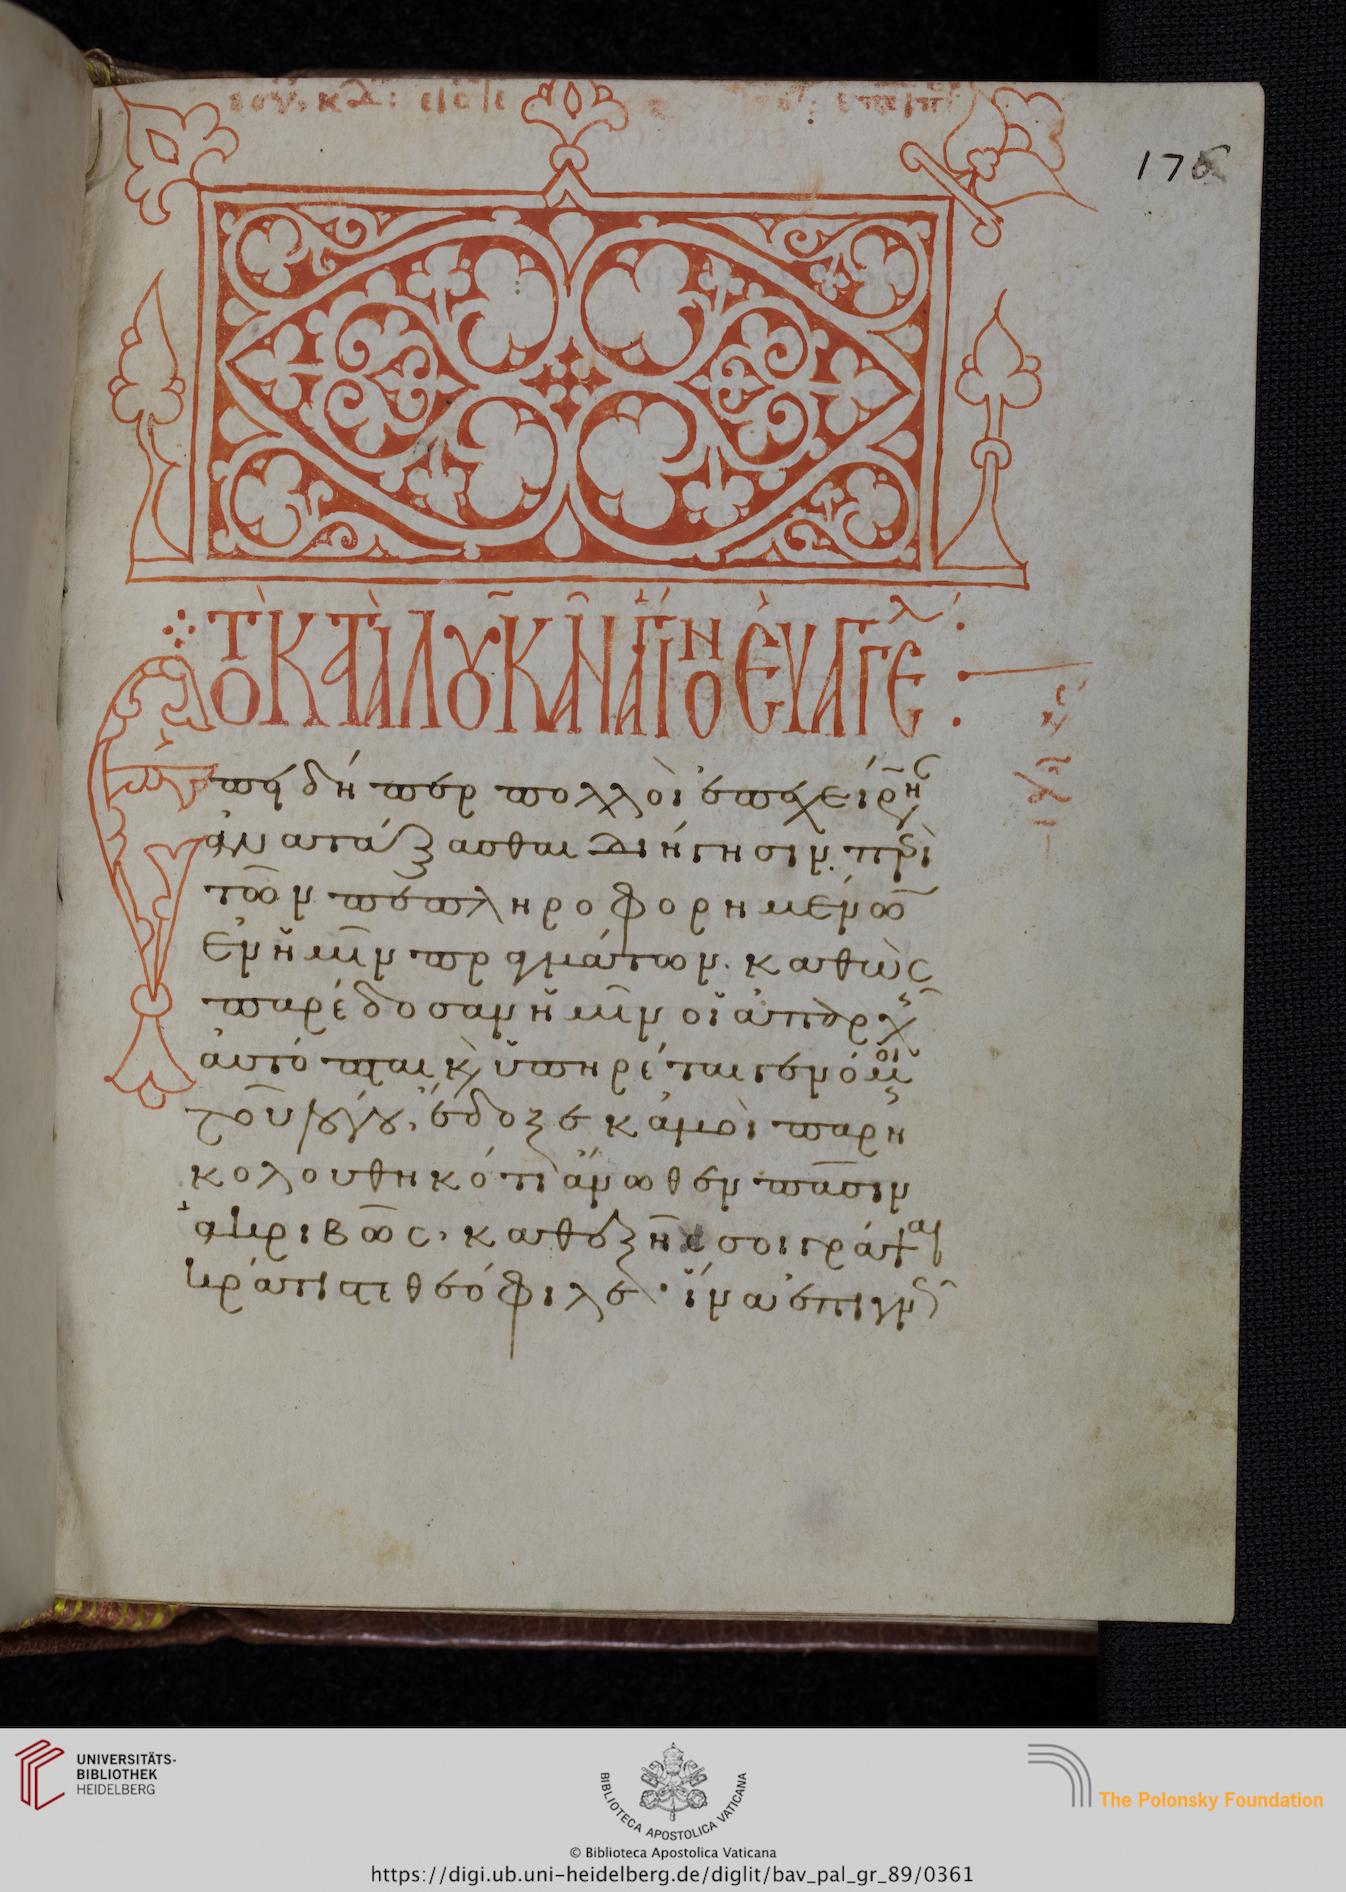 176
τὸ κατὰ λουκᾶν ἅγιον εὐαγγέλ
πειδήπερ πολλοὶ ἐπεχείρησ
ἀνατάξασθαι διήγησιν. περὶ
τῶν πεπληροφορημένω
ἐν ἡμῖν πραγμάτων. καθὼς
παρέδοσαν ἡμῖν οἱ ἀπαρχῆς
αὐτόπται κ ὑπηρέται γενόμενοι
τοῦ λόγου, ἔδοξε κἀμοὶ παρη
κολουθηκότι ἄνωθεν πᾶσιν
ἀκριβῶς, καθεξῆς σοι γράψαι
κράτιστε θεόφιλε· ἵνα ἐπιγν
UNIVERSITÄTS-
BIBLIOTHEK
HEIDELBERG
BIBLIOTECA APOSTOLICA VATICANA
The Polonsky Foundation
© Biblioteca Apostolica Vaticana
https://digi.ub.uni-heidelberg.de/diglit/bav_pal_gr_89/0361